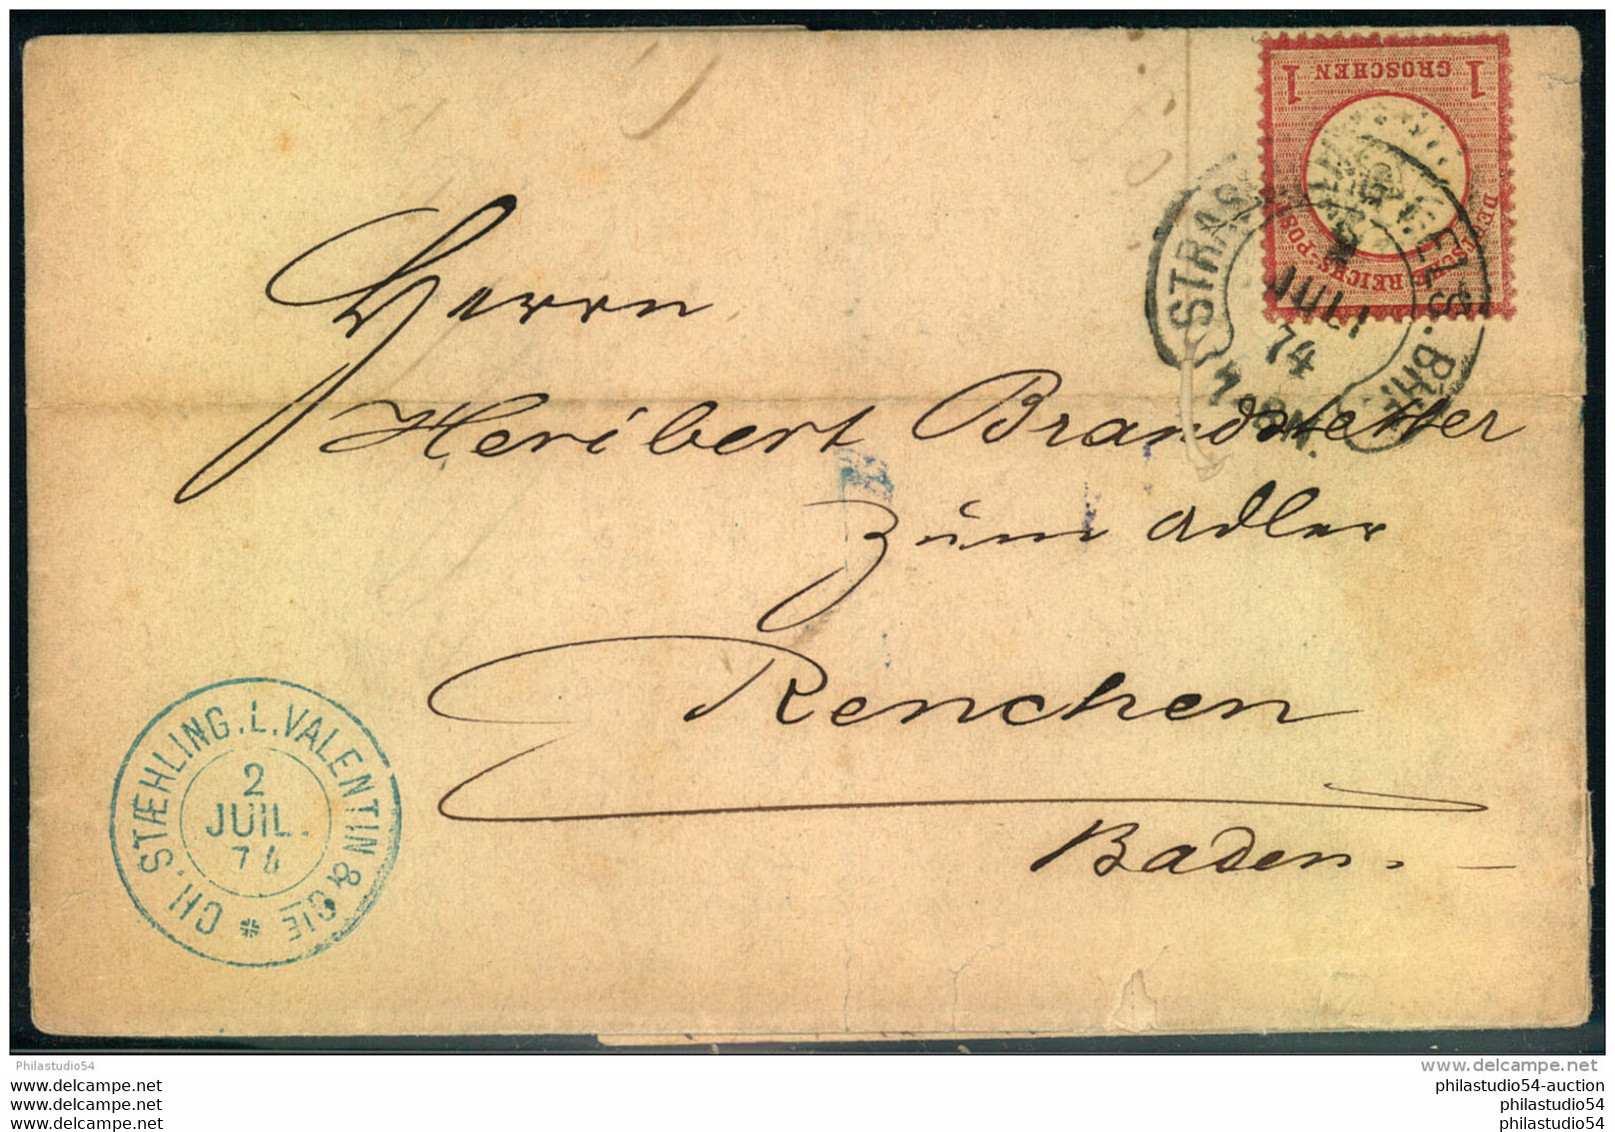 1 GROSCHEN 1
DEUTSCHE REICHS-POST
2
JULI
74
Herrn
Heribert Brandstetter
Zum Adler
Renchen
Baden.
CH. STÆHLING. L. VALENTIN & CIE
2
JUIL.
74
Philastudio54
delcampe.net
www.delcampe.net
www.delcampe.net
www.delcampe.net
philastudio54-auction
philastudio54
philastudio54